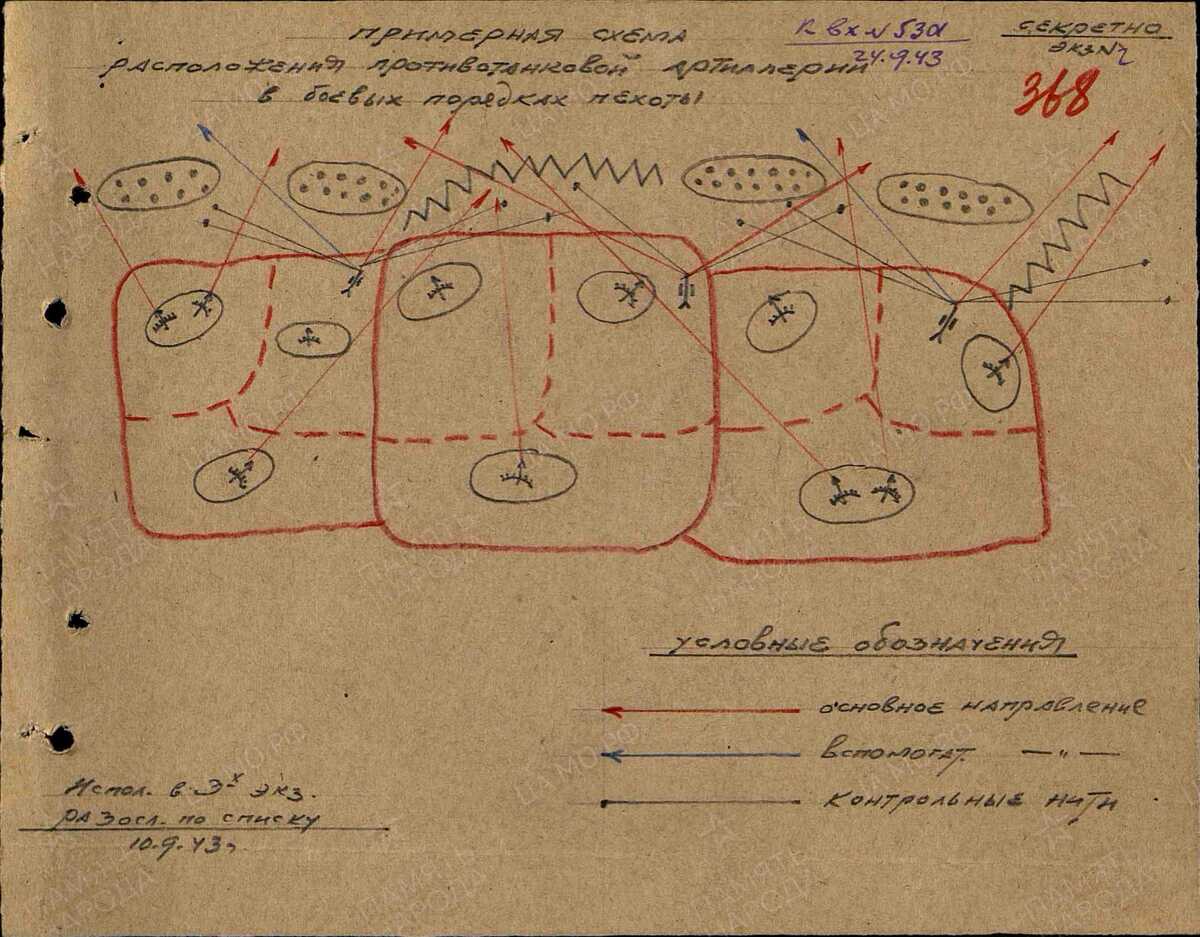 Примерная схема
расположения противотанковой артиллерии
в боевых порядках пехоты
К вх № 53а
24.9.43
Секретно
экз №
368
Условные обозначения
основное направление
вспомогат. — " —
контрольные нити
Испол. в 3х экз.
разосл. по списку
10.9.43г.
ПАМЯТЬ
НАРОДА
ЦАМО.РФ